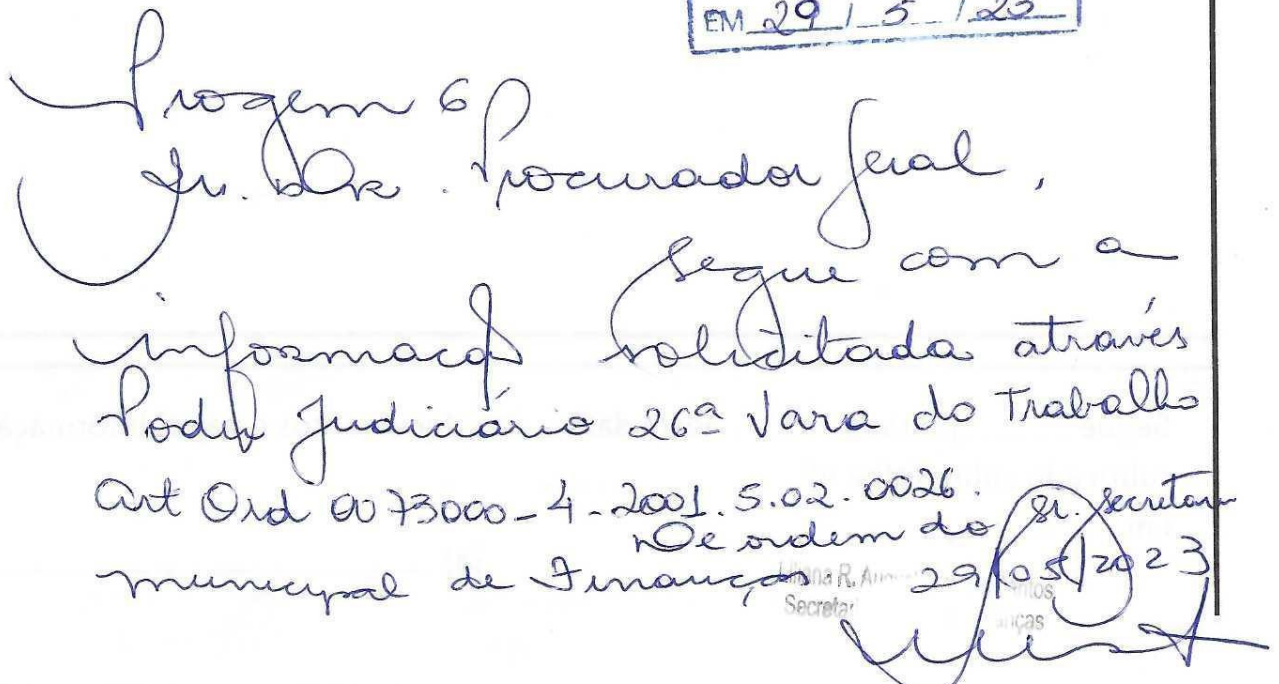 EM 29 / 5 / 23
Progem 6
Sr. Dr. Procurador Geral,
Segue com a
informação solicitada através
Poder Judiciário 26ª Vara do Trabalho
Art Ord 0073000-4-2001.5.02.0026.
De ordem do Sr. Secretario
municipal de Finanças 29/05/2023
Secretar